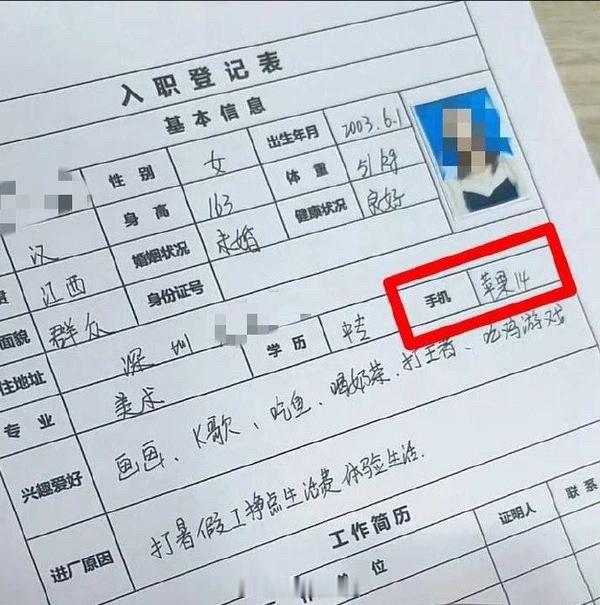 入职登记表
基本信息
性别 女 出生年月 2003.6.1
汉 身高 163 体重 51kg
江西 婚姻状况 未婚 健康状况 良好
面貌 群众 身份证号
住地址 深圳 学历 中专 手机 苹果14
专业 美术
兴趣爱好 画画、K歌、吃鱼、喝奶茶、打王者、吃鸡游戏
进厂原因 打暑假工挣点生活费 体验生活.
工作简历
单位 证明人 联系